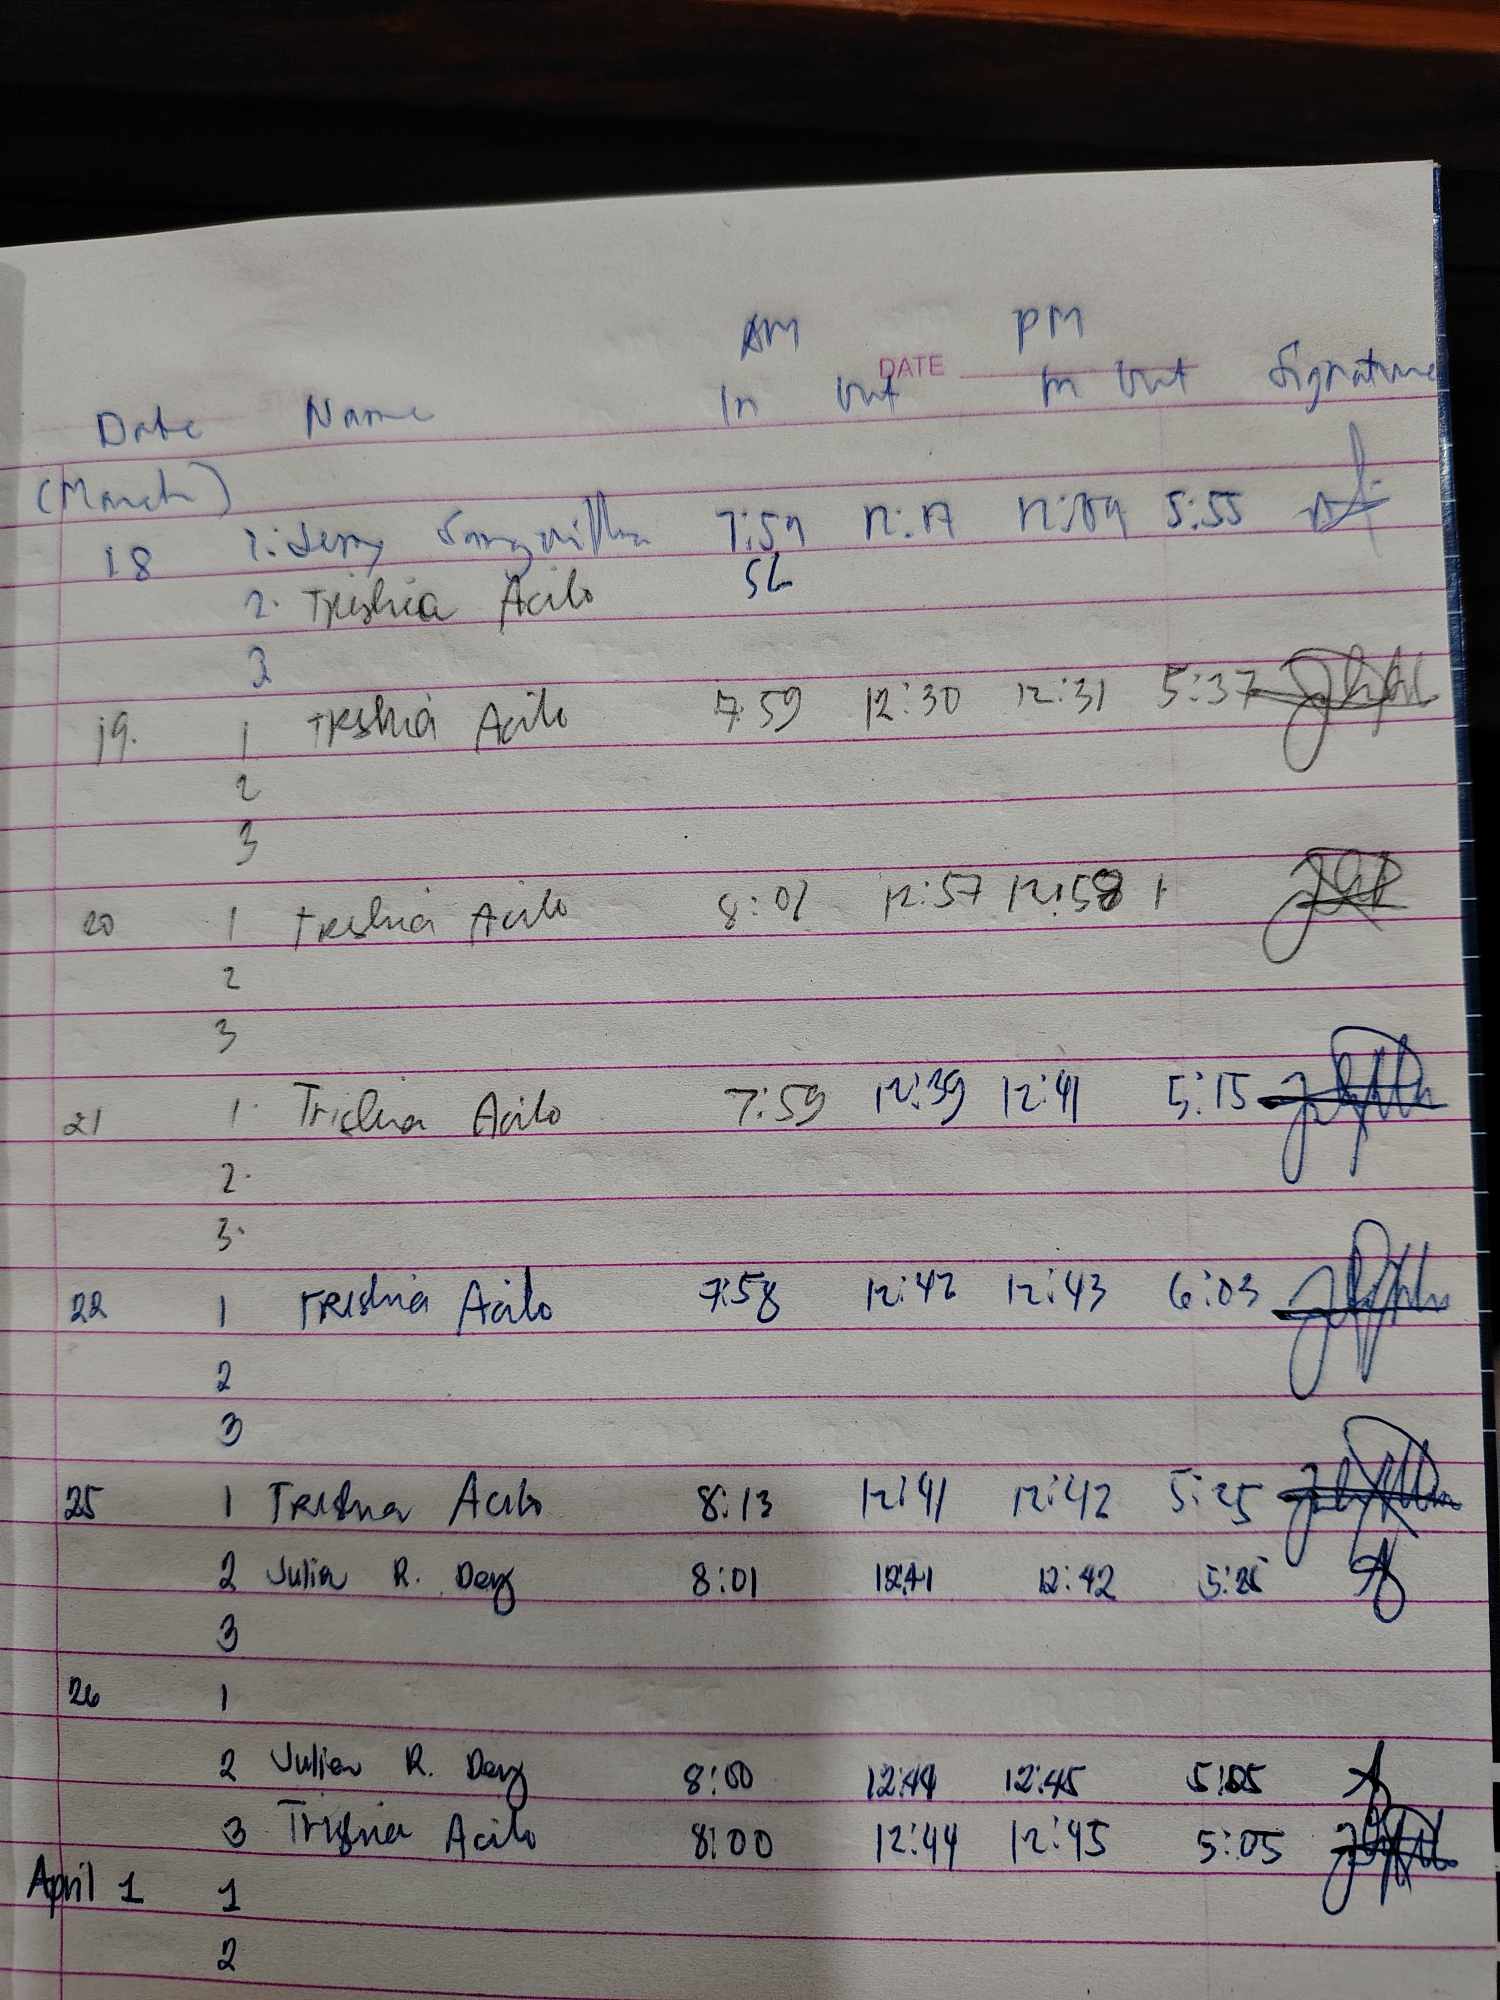 AM PM
DATE
Date Name In Out In Out Signature
(March)
18 1. 7:59 5:55
2. Trishia Acilo SL
3
19. 1 Trishia Acilo 7:59 12:30 12:31 5:37
2
3
20 1 Trishia Acilo 8:01 12:57 12:58 1
2
3
21 1. Trishia Acilo 7:59 12:39 12:41 5:15
2.
3.
22 1 Trishia Acilo 7:58 12:42 12:43 6:03
2
3
25 1 Trishia Acilo 8:13 12:41 12:42 5:25
2 Julia R. 8:01 12:41 12:42
3
26 1
2 Julia R. 8:00 12:44 12:45 5:05
3 Trishia Acilo 8:00 12:44 12:45 5:05
April 1 1
2